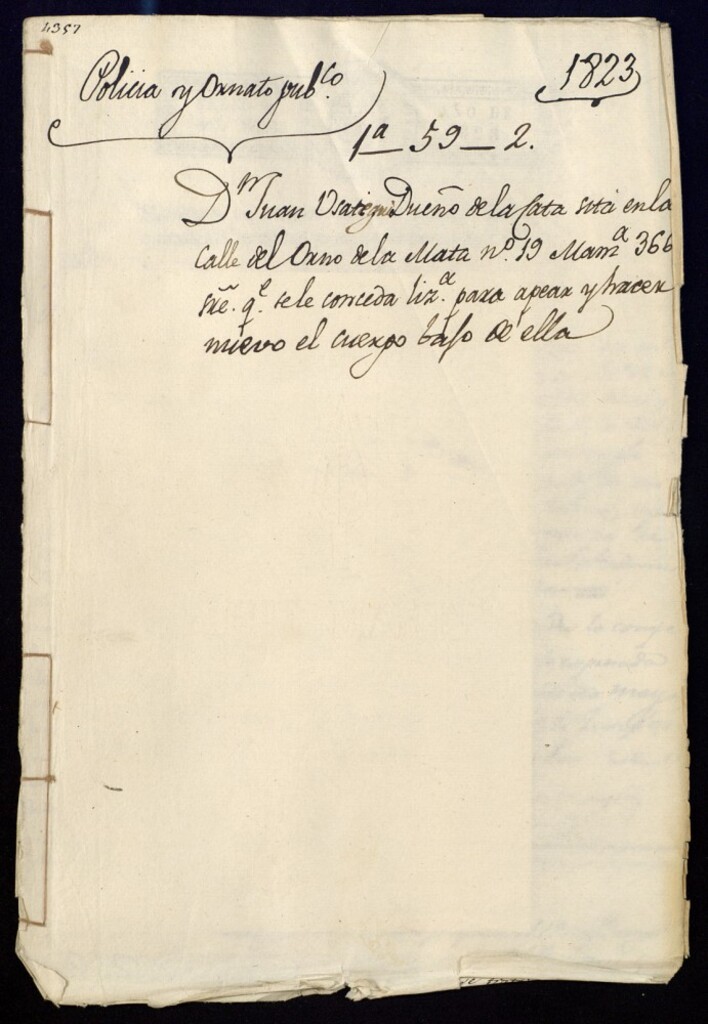 4357
Policia y Ornato pub.co
1823
1a 59 2.
Dn Juan Usategui Dueño de la Casa sita en la
calle del Orno de la Mata no. 19 Manza 366
sre. qe. se le conceda liz.a para apear y hacer
nuevo el cuerpo bajo de ella